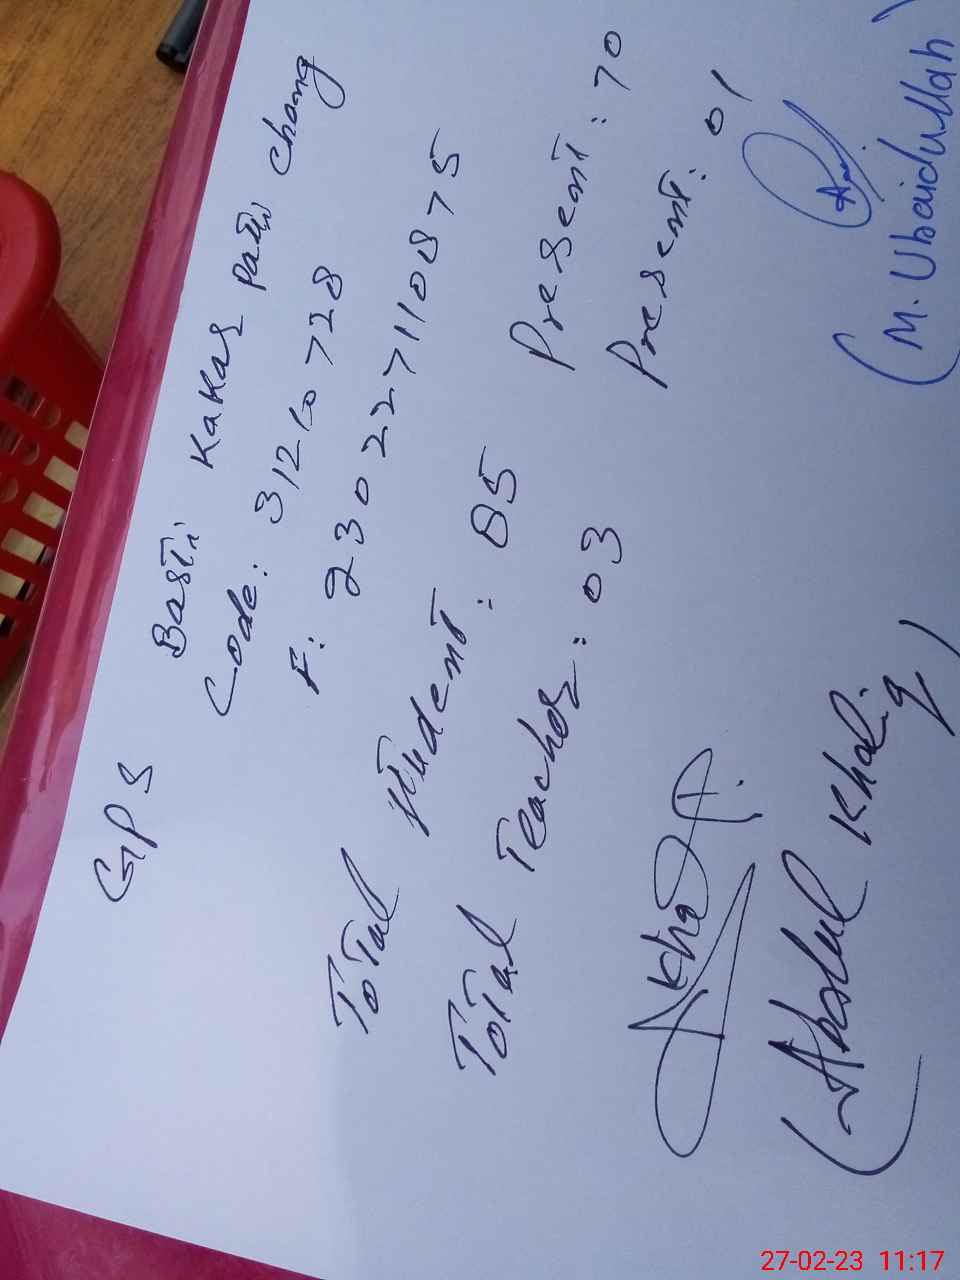 GPS Basti Kakar Patti Chang
Code: 31210728
F: 230227110875
Total student: 85 Present: 70
Total Teacher: 03 Present: 01
(Abdul Khaliq)
(M. Ubaidullah)
27-02-23 11:17